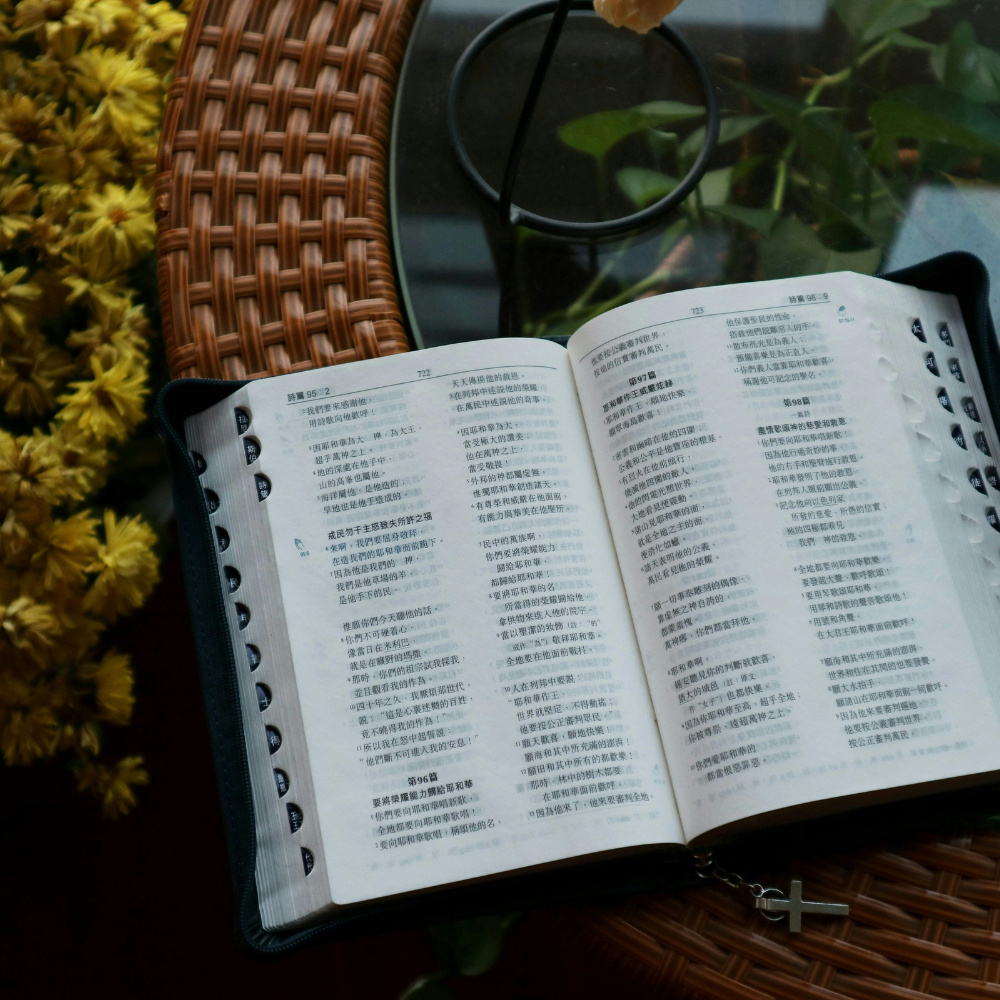 詩篇 95:2
722
²我們要來感謝他，
用詩歌向他歡呼！
³因耶和華為大 神，為大王，
超乎萬神之上。
⁴地的深處在他手中；
山的高峯也屬他。
⁵海洋屬他，是他造的；
旱地也是他手造成的。
戒民勿干主怒致失所許之福
⁶來啊，我們要屈身敬拜，
在造我們的耶和華面前跪下。
⁷因為他是我們的 神；
我們是他草場的羊，
是他手下的民。
惟願你們今天聽他的話。
⁸你們不可硬着心，
像當日在米利巴，
就是在曠野的瑪撒。
⁹那時，你們的祖宗試我探我，
並且觀看我的作為。
¹⁰四十年之久，我厭煩那世代，
說：“這是心裏迷糊的百姓，
竟不曉得我的作為！”
¹¹所以我在怒中起誓說：
“他們斷不可進入我的安息！”
第96篇
要將榮耀能力歸給耶和華
¹你們要向耶和華唱新歌，
全地都要向耶和華歌唱！
²要向耶和華歌唱，稱頌他的名，
天天傳揚他的救恩，
³在列邦中述說他的榮耀，
在萬民中述說他的奇事。
⁴因耶和華為大，
當受極大的讚美；
他在萬神之上，
當受敬畏！
⁵外邦的神都屬虛無；
惟獨耶和華創造諸天。
⁶有尊榮和威嚴在他面前；
有能力與華美在他聖所。
⁷民中的萬族啊，
你們要將榮耀能力
歸給耶和華，
都歸給耶和華！
⁸要將耶和華的名
所當得的榮耀歸給他，
拿供物來進入他的院宇。
⁹當以聖潔的妝飾（註：“的”
或作“為”）敬拜耶和華；
全地要在他面前戰抖。
¹⁰人在列邦中要說：
耶和華作王，
世界就堅定，不得動搖；
他要按公正審判眾民。
¹¹願天歡喜，願地快樂！
願海和其中所充滿的澎湃！
¹²願田和其中所有的都歡樂！
那時，林中的樹木都要
在耶和華面前歡呼。
¹³因為他來了，他來要審判全地。
723
詩篇 98:9
他要按公義審判世界，
按他的信實審判萬民。
第97篇
耶和華作王威嚴炫赫
¹耶和華作王，願地快樂，
願眾海島歡喜！
²密雲和幽暗在他的四圍；
公義和公平是他寶座的根基。
³有烈火在他前頭行，
燒滅他四圍的敵人。
⁴他的閃電光照世界，
大地看見便震動。
⁵諸山見耶和華的面，
就是全地之主的面，
便消化如蠟。
⁶諸天表明他的公義，
萬民看見他的榮耀。
⁷願一切事奉雕刻的偶像、
靠虛無之神自誇的，
都蒙羞愧。
萬神哪，你們都當拜他。
⁸耶和華啊，
錫安聽見你的判斷就歡喜，
猶大的城邑（註：原文
作“女子”）也都快樂。
⁹因為你耶和華至高，超乎全地；
你被尊崇，遠超萬神之上。
¹⁰你們愛耶和華的，
都當恨惡罪惡；
他保護聖民的性命，
搭救他們脫離惡人的手。
¹¹散布亮光是為義人；
預備喜樂是為正直人。
¹²你們義人當靠耶和華歡喜，
稱謝他可記念的聖名。
第98篇
一篇詩
盡情歌頌神的慈愛和救恩
¹你們要向耶和華唱新歌！
因為他行過奇妙的事；
他的右手和聖臂施行救恩。
²耶和華發明了他的救恩，
在列邦人眼前顯出公義；
³記念他向以色列家
所發的慈愛，所憑的信實。
地的四極都看見
我們 神的救恩。
⁴全地都要向耶和華歡樂；
要發起大聲，歡呼歌頌！
⁵要用琴歌頌耶和華，
用琴和詩歌的聲音歌頌他！
⁶用號和角聲，
在大君王耶和華面前歡呼。
⁷願海和其中所充滿的澎湃；
世界和住在其間的也要發聲。
⁸願大水拍手；
願諸山在耶和華面前一同歡呼；
⁹因為他來要審判遍地。
他要按公義審判世界，
按公正審判萬民。